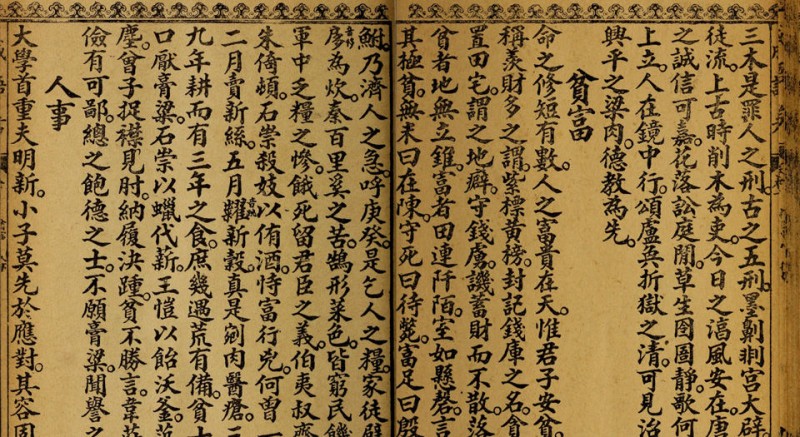 三木是罪人之刑古之五刑墨劓剕宫大辟
徒流上古時削木為吏今日之淳風安在唐
之誠信可嘉花落訟庭閒草生囹圄靜歌何
上立人在鏡中行頌盧奐折獄之清可見治
興平之梁肉德教為先
貧富
命之修短有數人之富貴在天惟君子安貧
稱羨財多之謂紫標黃榜封記錢庫之名貪
置田宅謂之地癖守錢虜譏蓄財而不散落
貧者地無立錐富者田連阡陌室如懸磬言
其極貧無米曰在陳守死曰待斃富足曰殷
鮒乃濟人之急呼庚癸是乞人之糧家徒壁
扊為炊秦百里奚之苦鵠形菜色皆窮民饑
軍中乏糧之慘餓死留君臣之義伯夷叔齊
朱倚頓石崇殺妓以侑酒恃富行兇何曾一
二月賣新絲五月糶新穀真是剜肉醫瘡三
九年耕而有三年之食庶幾遇荒有備貧士
口厭膏粱石崇以蠟代薪王愷以飴沃釜范
塵曾子捉襟見肘納履決踵貧不勝言韋莊
儉有可鄙總之飽德之士不願膏粱聞譽之
人事
大學首重夫明新小子莫先於應對其容固